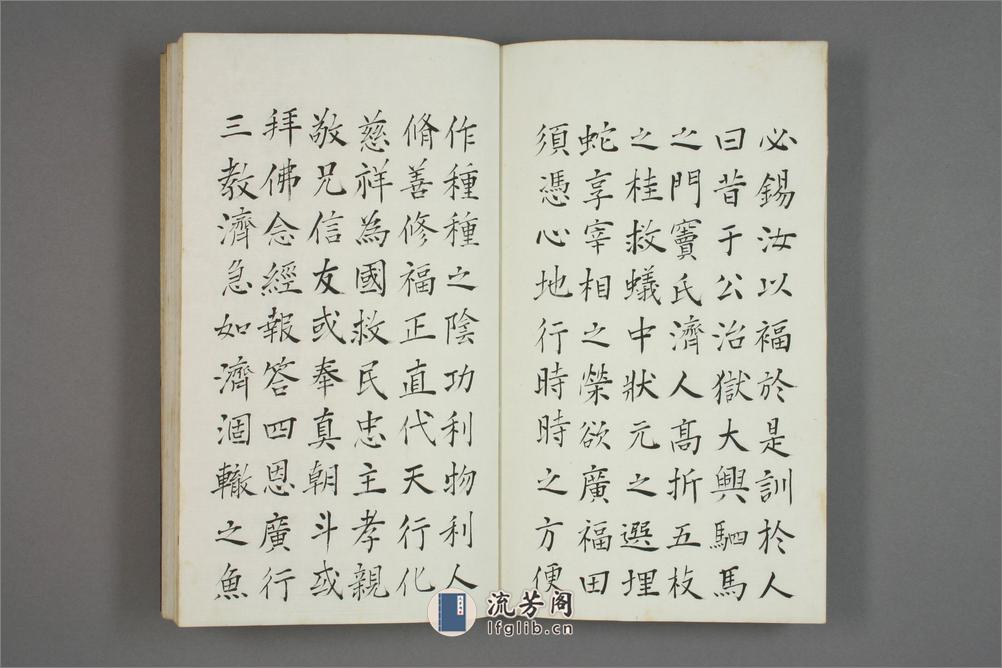 必錫汝以福於是訓於人
曰昔于公治獄大興駟馬
之門竇氏濟人高折五枝
之桂救蟻中狀元之選埋
蛇享宰相之榮欲廣福田
須憑心地行時時之方便
作種種之陰功利物利人
脩善修福正直代天行化
慈祥為國救民忠主孝親
敬兄信友或奉真朝斗或
拜佛念經報答四恩廣行
三教濟急如濟涸轍之魚
流芳阁
lfglib.cn